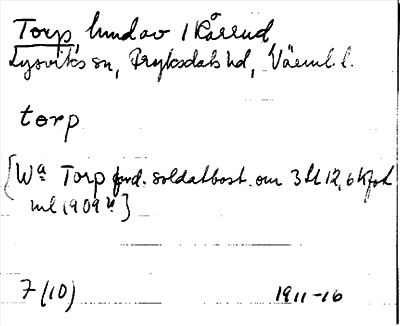 Torp, hmd av 1 Råsrud
Lysviks sn, Fryksdals hd, Värml. l.
torp
[Wa Torp förd. soldatbost. om 3 tl 12,6 kfot
ml 1909 ]
7 (10) 1911-16